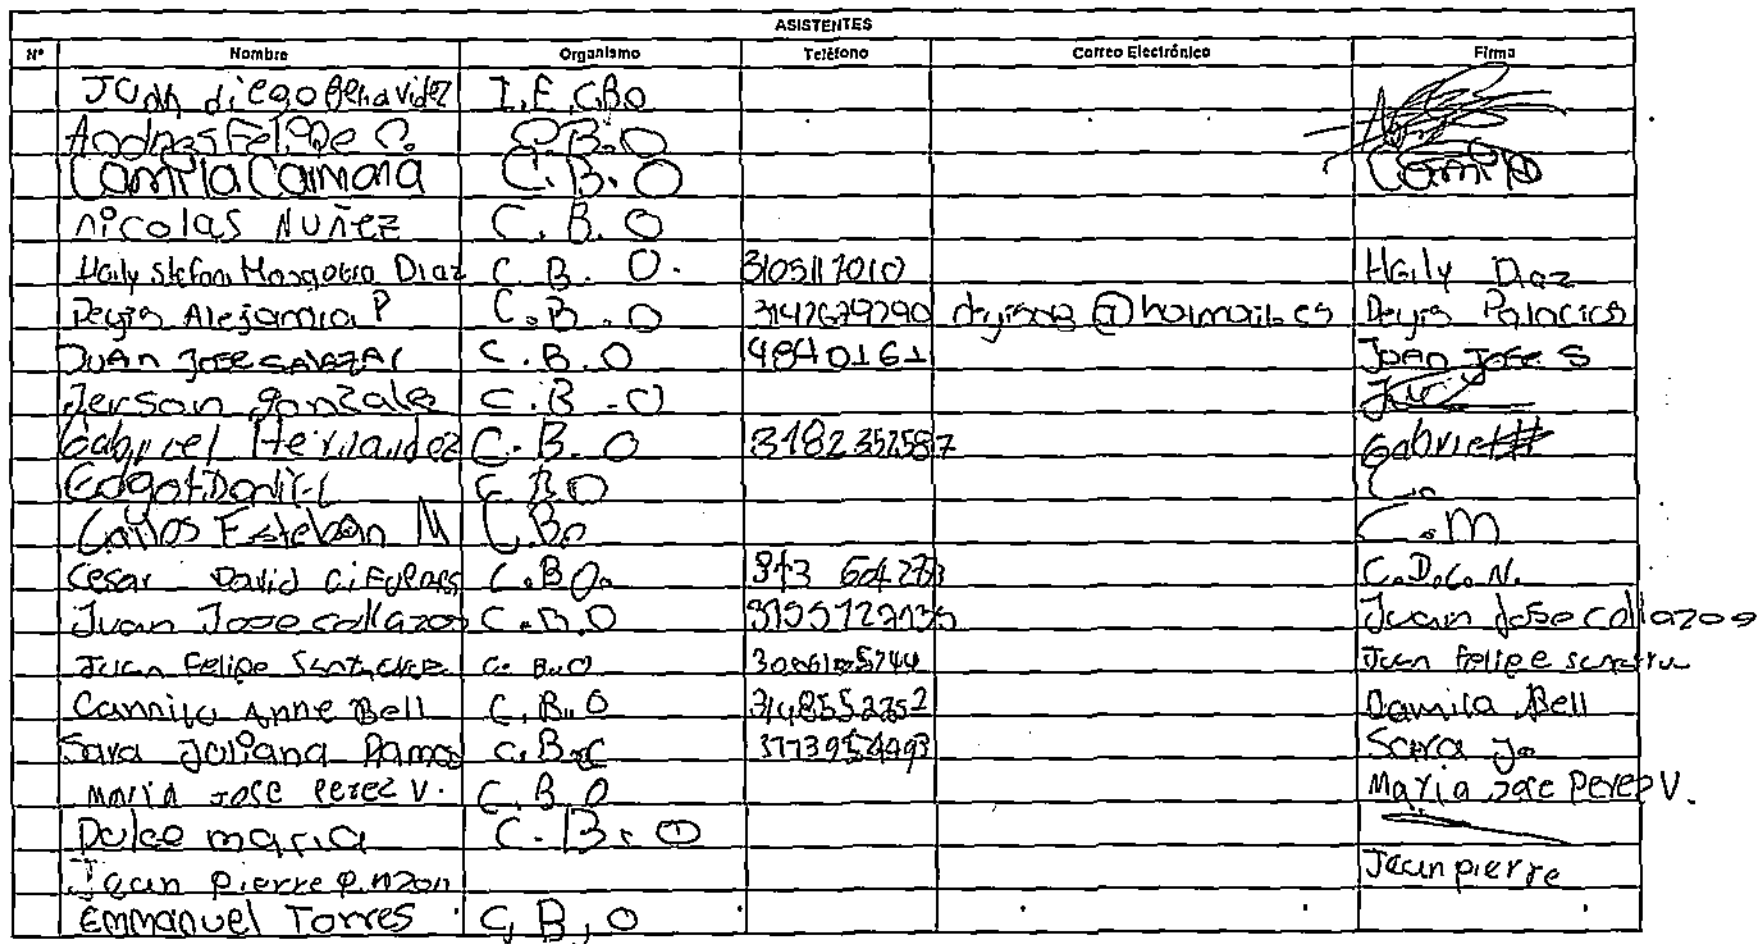 ASISTENTES
Nº Nombre Organismo Teléfono Correo Electrónico Firma
Juan diego Benavidez I.E.C.B.O
Andres Felipe C. C.B.O
Camila Caimona C.B.O Camila
nicolas Nuñez C.B.O
Haily Stefani Mosquera Diaz C.B.O. 3105117010 Haily Diaz
Deyis Alejamra P C.B.O 3142679290 Deyis Palacios
Juan Jose Salazar C.B.O 4840161 Joan Jose S
Jerson gonzalez C.B.O
Gabriel Hernandez C.B.O 3182352587 Gabriel H
C.B.O
Carlos Esteban M C.B.O C.M
Cesar David Cifuentes C.B.O. C.D.C.N.
Juan Jose Collazos C.B.O Juan Jose Collazos
Juan Felipe C.B.O Juan Felipe
Camila Anne Bell C.B.O 3148552252 Camila Bell
Sara Juliana Ramos C.B.O Sara Jo
Maria Jose Perez V. C.B.O Maria Jose Perez V.
Dulce maria C.B.O
Jean Pierre Pinzon Jean pierre
Emmanuel Torres C,B,O